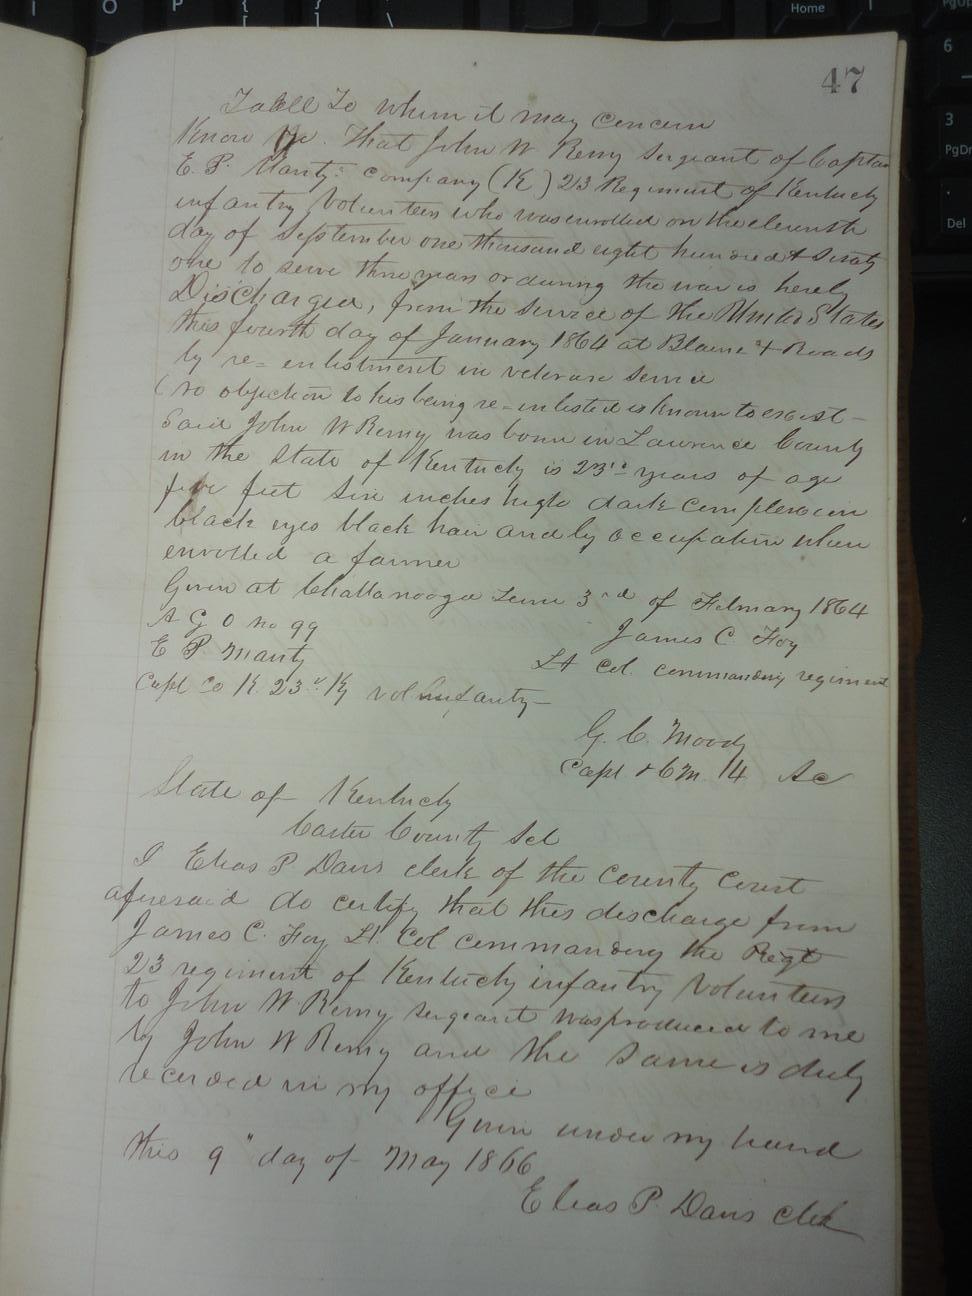 47
To all To whom it may concern
Know Ye. That John W Remy Sergeant of Captain
E. P. Manty: company (K) 23 Regiment of Kentucky
infantry Volunteers who was enrolled on the eleventh
day of September one thousand eight hundred & Sixty
one to serve three years or during the war is hereby
Discharged, from the service of the United States
this fourth day of January 1864 at Blaine + Roads
by re=enlistment in veteran service
(no objection to his being re=enlisted is known to exist—
Said John W Remy was born in Lawrence County
in the State of Kentucky is 23 years of age
five feet six inches high dark complexion
black eyes black hair and by occupation when
enrolled a farmer
Given at Chattanooga Tenn 3rd of February 1864
A G O no 99
James C Foy
E P Manty
Lt Col. commanding regiment
Capt Co K. 23d Ky vol infanty—
G. C. Moody
Capt & C M. 14 Ac
State of Kentucky
Carter County Sct
I Elias P Davis clerk of the County Court
aforesaid do certify that this discharge from
James C. Foy Lt. Col commanding the Regt
23 regiment of Kentucky infantry Volunteers
to John W Remy sergeant was produced to me
by John W Remy and the same is duly
recorded in my office
Given under my hand
this 9" day of May 1866
Elias P. Davis clk
O
P
{
[
}
]
\
Home
6
3
PgDn
.
Del